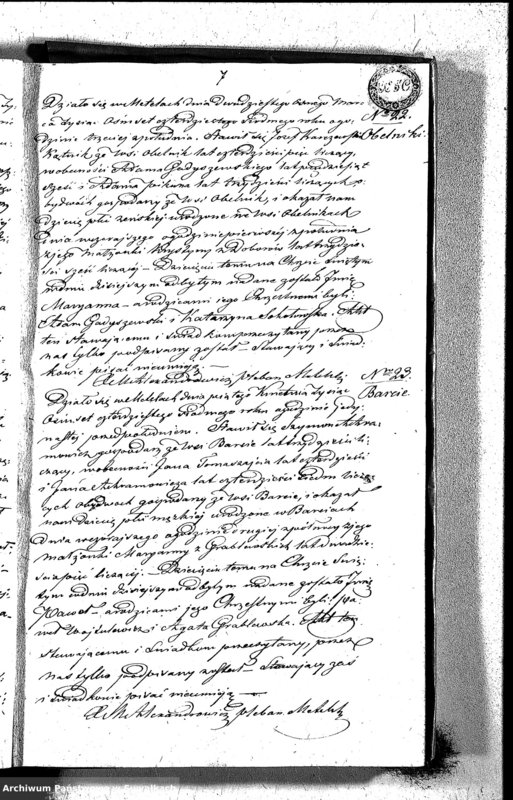 7
Działo się w Metelach dnia dwudziestego ósmego Mar
ca tysiąc ośmset czterdziestego siódmego roku o go
dzinie trzeciej z południa. Stawił się Józef
Nro 22.
Obelniki
ze wsi Obelnik lat czterdzieści pięć liczący,
w obecności Adama Gadyszewskiego lat pięćdziesiąt
sześć i Adama lat trzydzieści liczących o
bydwóch gospodarzy ze wsi Obelnik, i okazał nam
dziecię płci żeńskiej urodzone we wsi Obelnikach
dnia wczorajszego o godzinie pierwszej z południa
z jego małżonki Krystyny z lat trzydzie
ści sześć liczącej – Dziecięciu temu na Chrzcie świętym
w dniu dzisiejszym odbytym nadane zostało Imię
Maryanna – a rodzicami jego Chrzestnemi byli
Adam Gadyszewski i Katarzyna Sokołowska. Akt
ten stawającemu i świadkom przeczytany przez
nas tylko podpisany został – Stawający i świad
kowie pisać nieumieją
X M Alexandrowicz Pleban Metelski
Nro 23.
Barcie
Działo się w Metelach dnia piątego Kwietnia tysiąc
ośmset czterdziestego siódmego roku o godzinie jedy
nastej przed południem. Stawił się Szymon Achra
mowicz gospodarz ze wsi Barcie lat trzydzieści li
czący, w obecności Jana Tomaszajcia lat czterdzieści
i Jana Achramowicza lat czterdzieści siedm liczą
cych obydwóch gospodarzy ze wsi Barcie, i okazał
nam dziecię płci męzkiej urodzone w Barciach
dnia wczorajszego o godzinie drugiej z północy z jego
małżonki Maryanny z Grablewskich lat dwadzie
ścia pięć liczącej. – Dziecięciu temu na Chrzcie Świę
tym w dniu dzisiejszym odbytym nadane zostało Imię
Paweł – a rodzicami jego Chrzestnymi byli: Pa
weł Wojtulewicz i Agata Grablewska. Akt ten
stawającemu i świadkom przeczytany, przez
nas tylko podpisany został – Stawający zaś
i świadkowie pisać nieumieją
X M Alexandrowicz Pleban Metelski
Archiwum Państwowe w Suwałkach